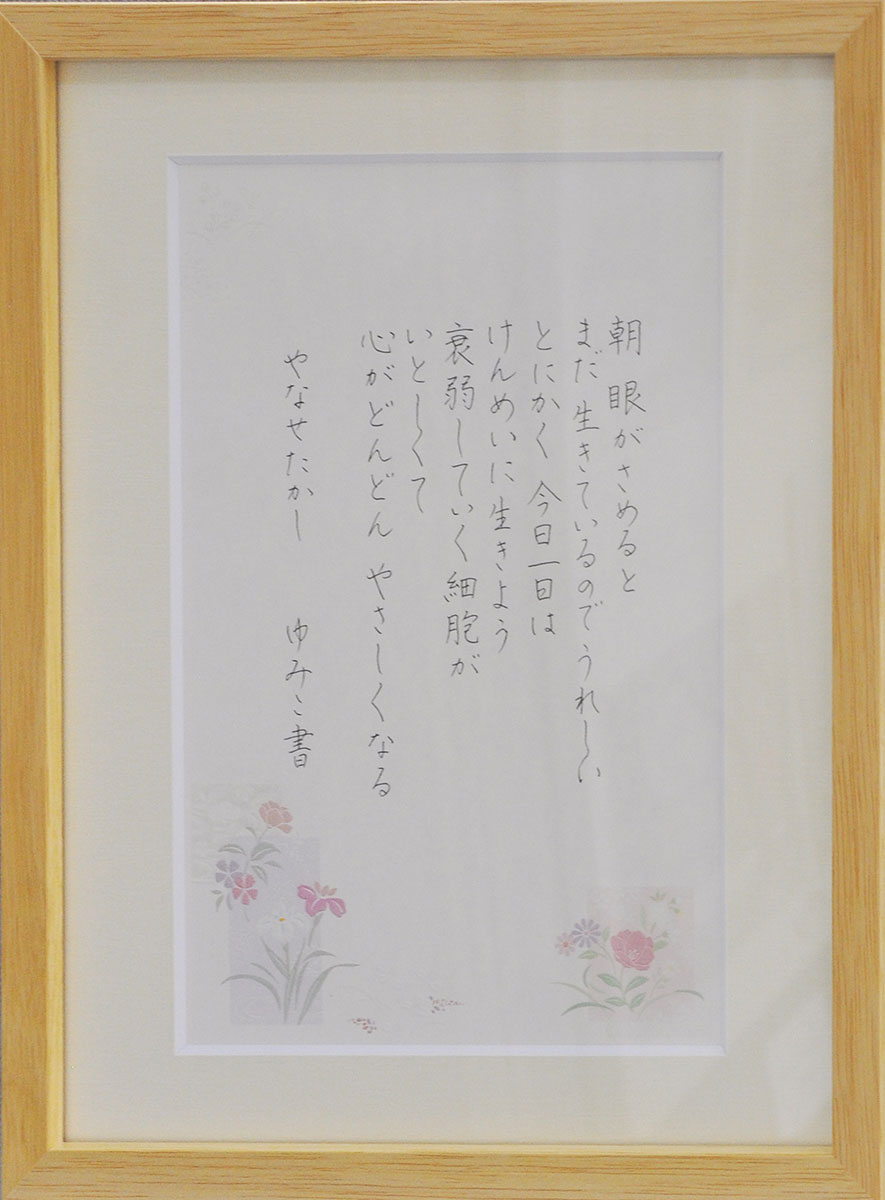 朝 眼がさめると
まだ 生きているのでうれしい
とにかく 今日一日は
けんめいに生きよう
衰弱していく細胞が
いとしくて
心がどんどん やさしくなる
やなせたかし ゆみこ書